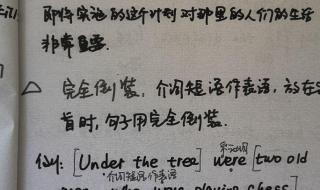 即将实施的这个计划对那里的人们的生活
非常重要.
△ 完全倒装, 介词短语作表语, 放在
首时, 句子用完全倒装.
例: [Under the tree] were [two old
介词短语作表语